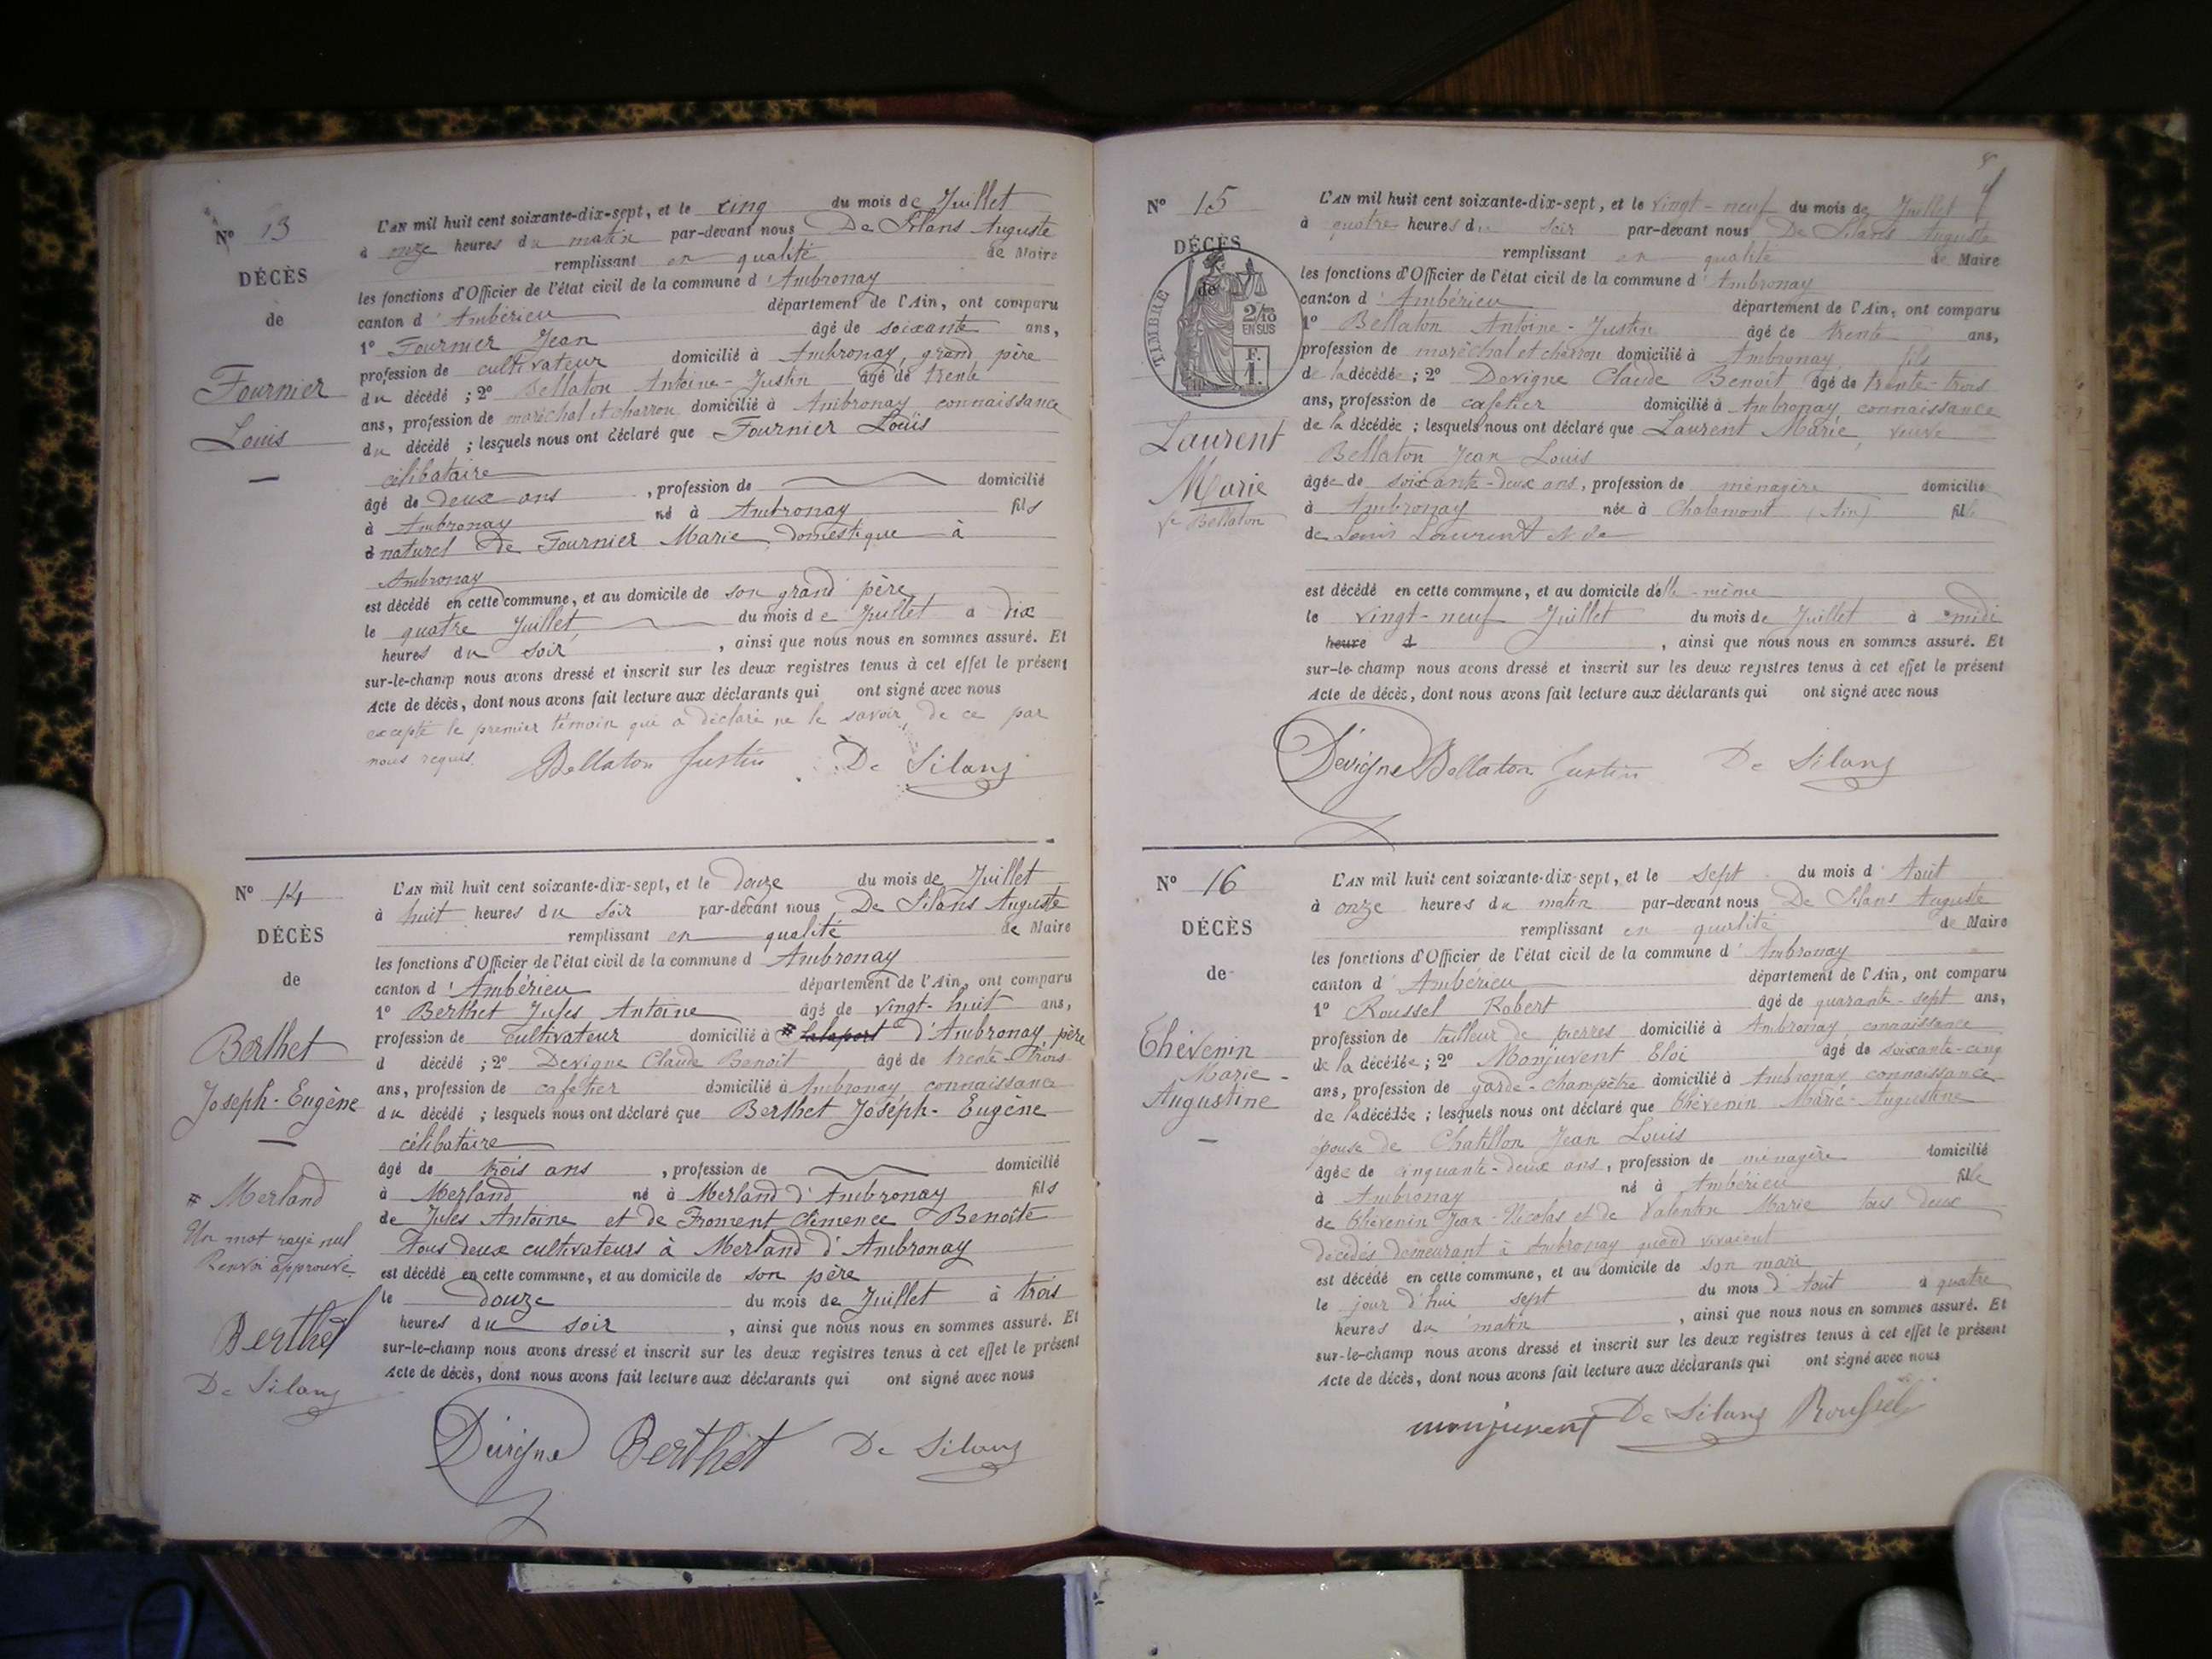 Nº 13
DÉCÈS
de
Fournier
Louis
L'AN mil huit cent soixante-dix-sept, et le cinq du mois de Juillet
à onze heures du matin par-devant nous De Silans Auguste
remplissant en qualité de Maire
les fonctions d'Officier de l'état civil de la commune d'Ambronay
canton d'Ambérieu département de l'Ain, ont comparu
1º Fournier Jean âgé de soixante ans,
profession de cultivateur domicilié à Ambronay, grand père
du décédé ; 2º Bellaton Antoine-Justin âgé de trente
ans, profession de maréchal et charron domicilié à Ambronay connaissance
du décédé ; lesquels nous ont déclaré que Fournier Louis
célibataire
âgé de deux ans , profession de domicilié
à Ambronay né à Ambronay fils
d naturel de Fournier Marie domestique à
Ambronay
est décédé en cette commune, et au domicile de son grand père
le quatre Juillet du mois de Juillet à dix
heures du soir , ainsi que nous nous en sommes assuré. Et
sur-le-champ nous avons dressé et inscrit sur les deux registres tenus à cet effet le présent
Acte de décès, dont nous avons fait lecture aux déclarants qui ont signé avec nous
excepté le premier témoin qui a déclaré ne le savoir, de ce par
nous requis.
Bellaton Justin De Silans
Nº 14
DÉCÈS
de
Berthet
Joseph-Eugène
# Merland
Un mot rayé nul
Renvoi approuvé
Berthet
De Silans
L'AN mil huit cent soixante-dix-sept, et le douze du mois de Juillet
à huit heures du soir par-devant nous De Silans Auguste
remplissant en qualité de Maire
les fonctions d'Officier de l'état civil de la commune d'Ambronay
canton d'Ambérieu département de l'Ain, ont comparu
1º Berthet Jules Antoine âgé de vingt-huit ans,
profession de cultivateur domicilié à # d'Ambronay père
d décédé ; 2º Devigne Claude Benoit âgé de trente-trois
ans, profession de cafetier domicilié à Ambronay connaissance
du décédé ; lesquels nous ont déclaré que Berthet Joseph-Eugène
célibataire
âgé de trois ans , profession de domicilié
à Merland né à Merland d'Ambronay fils
de Jules Antoine et de Froment Clémence Benoîte
tous deux cultivateurs à Merland d'Ambronay
est décédé en cette commune, et au domicile de son père
le douze du mois de Juillet à trois
heures du soir , ainsi que nous nous en sommes assuré. Et
sur-le-champ nous avons dressé et inscrit sur les deux registres tenus à cet effet le présent
Acte de décès, dont nous avons fait lecture aux déclarants qui ont signé avec nous
Devigne Berthet De Silans
8
Nº 15
DÉCÈS
de
TIMBRE
2/10
EN SUS
F.
1.
Laurent
Marie
Vve Bellaton
L'AN mil huit cent soixante-dix-sept, et le vingt-neuf du mois de Juillet
à quatre heures du soir par-devant nous De Silans Auguste
remplissant en qualité de Maire
les fonctions d'Officier de l'état civil de la commune d'Ambronay
canton d'Ambérieu département de l'Ain, ont comparu
1º Bellaton Antoine-Justin âgé de trente ans,
profession de maréchal et charron domicilié à Ambronay fils
de la décédée ; 2º Devigne Claude Benoit âgé de trente-trois
ans, profession de cafetier domicilié à Ambronay connaissance
de la décédée ; lesquels nous ont déclaré que Laurent Marie, veuve
Bellaton Jean Louis
âgée de soixante-deux ans, profession de ménagère domicilié
à Ambronay née à Chalamont (Ain) fille
de Louis Laurent
est décédé en cette commune, et au domicile d'elle-même
le vingt-neuf Juillet du mois de Juillet à midi
heure d , ainsi que nous nous en sommes assuré. Et
sur-le-champ nous avons dressé et inscrit sur les deux registres tenus à cet effet le présent
Acte de décès, dont nous avons fait lecture aux déclarants qui ont signé avec nous
Devigne Bellaton Justin De Silans
Nº 16
DÉCÈS
de
Thévenin
Marie-
Augustine
L'AN mil huit cent soixante-dix-sept, et le sept du mois d'Août
à onze heures du matin par-devant nous De Silans Auguste
remplissant en qualité de Maire
les fonctions d'Officier de l'état civil de la commune d'Ambronay
canton d'Ambérieu département de l'Ain, ont comparu
1º Roussel Robert âgé de quarante-sept ans,
profession de tailleur de pierres domicilié à Ambronay connaissance
de la décédée ; 2º Monjuvent Eloi âgé de soixante-cinq
ans, profession de garde-champêtre domicilié à Ambronay connaissance
de la décédée ; lesquels nous ont déclaré que Thévenin Marie-Augustine
épouse de Chatillon Jean Louis
âgée de cinquante-deux ans, profession de ménagère domicilié
à Ambronay né à Ambérieu fille
de Thévenin Jean-Nicolas et de Valentin Marie tous deux
décédés demeurant à Ambronay quand vivaient
est décédé en cette commune, et au domicile de son mari
le jour d'hui sept du mois d'Août à quatre
heures du matin , ainsi que nous nous en sommes assuré. Et
sur-le-champ nous avons dressé et inscrit sur les deux registres tenus à cet effet le présent
Acte de décès, dont nous avons fait lecture aux déclarants qui ont signé avec nous
monjuvent De Silans Roussel